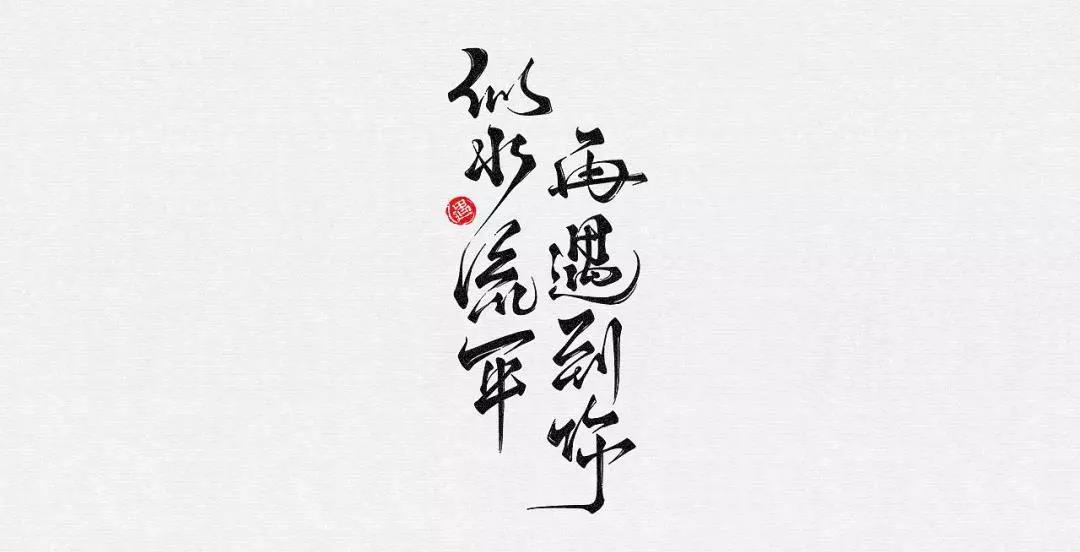 似水流年
再遇到你
遇